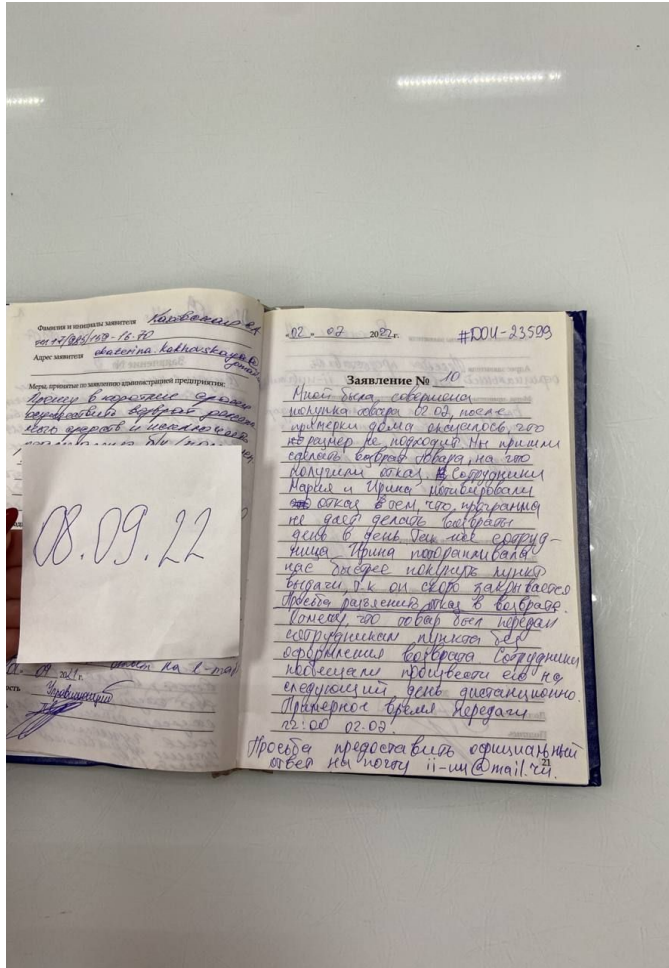 Фамилия и инициалы заявителя
Адрес заявителя ekaterina.kakhovskaya
Меры, принятые по заявлению администрацией предприятия:
Прошу в короткие сроки
осуществить возврат
08.09.22
Управляющий
"02" 02 2022 г. #DOU-23599
Заявление № 10
Мной была совершена
покупка товара 02.02, после
примерки дома оказалось, что
размер не подходит. Мы пришли
сделать возврат товара, на что
получили отказ. Сотрудники
Мария и Ирина мотивировали
отказ в тем, что программа
не дает делать возвраты
день в день. Так же сотруд-
ница Ирина поторапливала
нас быстрее покинуть пункт
выдачи, т.к он скоро закрывается
Просьба разъяснить отказ в возврате.
Помечу, что товар был передан
сотрудникам пункта без
оформления возврата. Сотрудники
пообещали произвести его на
следующий день дистанционно.
Примерное время передачи
22:00 02.02.
Просьба предоставить официальный
ответ на почту ii-uu@mail.ru.
21